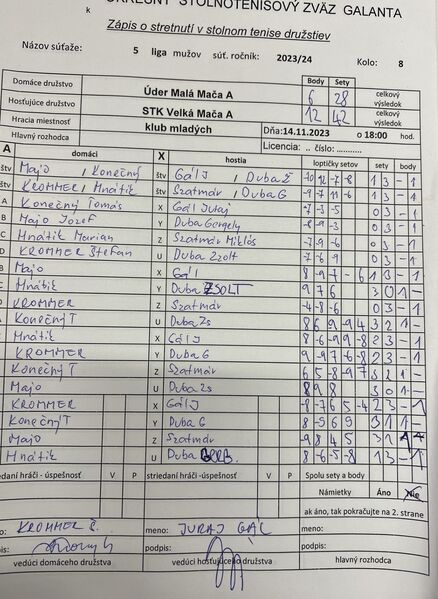 OKRESNÝ STOLNOTENISOVÝ ZVÄZ GALANTA
k
Zápis o stretnutí v stolnom tenise družstiev
Názov súťaže: 5 liga mužov súť. ročník: 2023/24 Kolo: 8
Domáce družstvo Úder Malá Mača A Body 6 Sety 28 celkový výsledok
Hosťujúce družstvo STK Velká Mača A 12 42 celkový výsledok
Hracia miestnosť klub mladých Dňa: 14.11.2023 o 18:00 hod.
Hlavný rozhodca Licencia: .. číslo: ...........
A domáci X hostia loptičky setov sety body
štv Majo, Konečný štv Gál J, Duba Z -10 12 -7 -8 1 3 - 1
štv KROMMER, Hnátik štv Szatmár, Duba G -9 -7 11 -6 1 3 - 1
A Konečný Tomás X Gál Juraj -7 -3 -5 0 3 - 1
B Majo Jozef Y Duba Gergely -8 -9 -3 0 3 - 1
C Hnátik Marian Z Szatmár Miklós -7 -9 -6 0 3 - 1
D KROMMER Štefan U Duba Zsolt -7 -6 -9 0 3 - 1
B Majo X Gál J -8 -9 7 -6 1 3 - 1
Hnátik Y Duba ZSOLT 9 7 6 3 0 1 -
KROMMER Z Szatmár -4 -8 -6 0 3 - 1
Konečný T U Duba Zs 8 6 9 -9 4 3 2 1 -
Hnátik X Gál J 8 -6 -9 9 -8 2 3 - 1
KROMMER Y Duba G -9 7 -6 -8 2 3 - 1
Konečný T Z Szatmár 6 5 -8 -9 7 3 2 1 -
Majo U Duba Zs 8 9 8 3 0 1 -
KROMMER X Gál J -8 -7 6 5 -4 2 3 - 1
Konečný T Y Duba G 8 -5 6 9 3 1 1 -
Majo Z Szatmár -9 8 4 5 3 1 1 -
Hnátik U Duba 8 -6 -5 -8 1 3 - 1
striedaní hráči - úspešnosť V P striedaní hráči - úspešnosť V P Spolu sety a body
Námietky Áno Nie
ak áno, tak pokračujte na 2. strane
meno: KROMMER Š. meno: JURAJ GÁL meno:
podpis: podpis: podpis:
vedúci domáceho družstva vedúci hosťujúceho družstva hlavný rozhodca